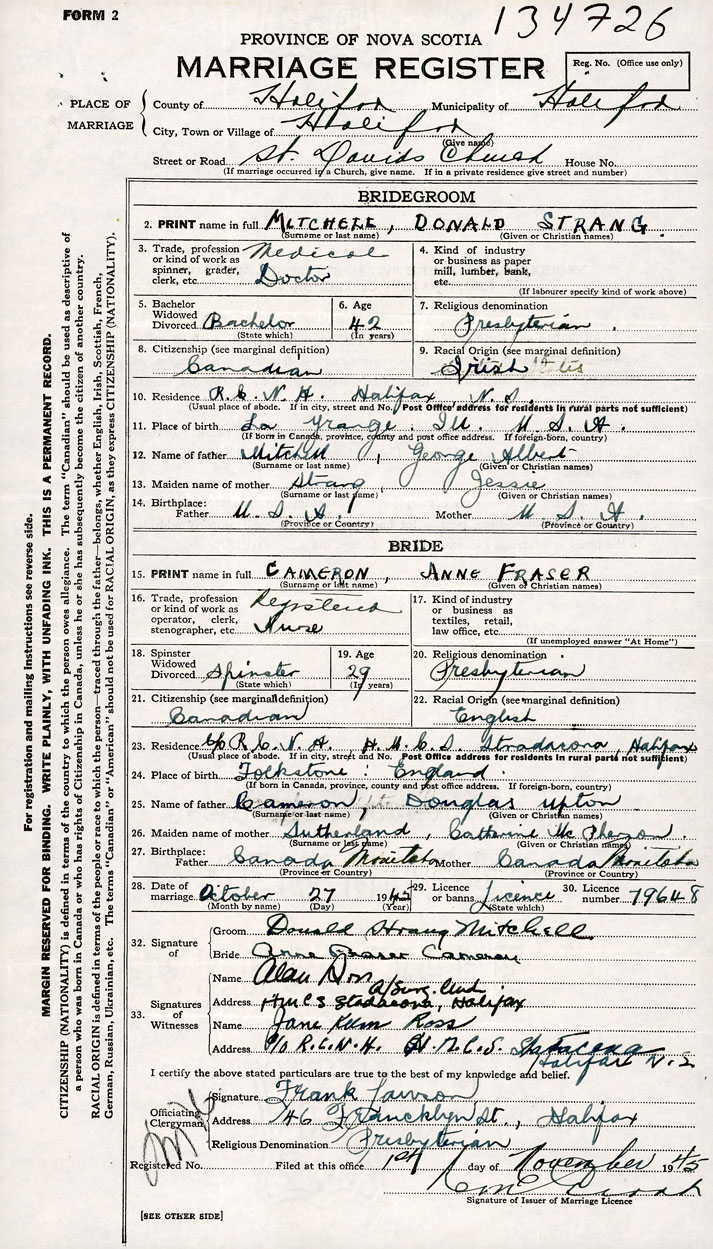 FORM 2
134726
PROVINCE OF NOVA SCOTIA
MARRIAGE REGISTER
Reg. No. (Office use only)
PLACE OF MARRIAGE
County of Halifax Municipality of Halifax
City, Town or Village of Halifax
(Give name)
Street or Road St. Davids Church House No.
(If marriage occurred in a Church, give name. If in a private residence give street and number)
BRIDEGROOM
2. PRINT name in full MITCHELL, DONALD STRANG.
(Surname or last name) (Given or Christian names)
3. Trade, profession or kind of work as spinner, grader, clerk, etc. Medical Doctor
4. Kind of industry or business as paper mill, lumber, bank, etc.
(If labourer specify kind of work above)
5. Bachelor Widowed Divorced Bachelor
(State which)
6. Age 42
(In years)
7. Religious denomination Presbyterian.
8. Citizenship (see marginal definition) Canadian
9. Racial Origin (see marginal definition) Irish
10. Residence R.C.N.H. Halifax N.S.
(Usual place of abode. If in city, street and No. Post Office address for residents in rural parts not sufficient)
11. Place of birth La Grange. Ill. U.S.A.
(If born in Canada, province, county and post office address. If foreign-born, country)
12. Name of father Mitchell, George Albert
(Surname or last name) (Given or Christian names)
13. Maiden name of mother Strang, Jessie
(Surname or last name) (Given or Christian names)
14. Birthplace: Father U.S.A. Mother U.S.A.
(Province or Country) (Province or Country)
BRIDE
15. PRINT name in full CAMERON, ANNE FRASER
(Surname or last name) (Given or Christian names)
16. Trade, profession or kind of work as operator, clerk, stenographer, etc. Registered Nurse
17. Kind of industry or business as textiles, retail, law office, etc.
(If unemployed answer "At Home")
18. Spinster Widowed Divorced Spinster
(State which)
19. Age 29
(In years)
20. Religious denomination Presbyterian
21. Citizenship (see marginal definition) Canadian
22. Racial Origin (see marginal definition) English
23. Residence c/o R.C.N.H. H.M.C.S. Stadacona, Halifax
(Usual place of abode. If in city, street and No. Post Office address for residents in rural parts not sufficient)
24. Place of birth Folkstone: England.
(If born in Canada, province, county and post office address. If foreign-born, country)
25. Name of father Cameron, Douglas Upton
(Surname or last name) (Given or Christian names)
26. Maiden name of mother Sutherland, Catherine McPherson.
(Surname or last name) (Given or Christian names)
27. Birthplace: Father Canada Manitoba Mother Canada Manitoba
(Province or Country) (Province or Country)
28. Date of marriage October 27 1945
(Month by name) (Day) (Year)
29. Licence or banns Licence
(State which)
30. Licence number 79648
32. Signature of
Groom Donald Strang Mitchell
Bride Anne Fraser Cameron
33. Signatures of Witnesses
Name Alan
Address HMCS Stadacona, Halifax
Name Jane Ross
Address c/o R.C.N.H. H.M.C.S. Stadacona
Halifax N.S
I certify the above stated particulars are true to the best of my knowledge and belief.
Officiating Clergyman
Signature Frank Lawson
Address 46 Francklyn St., Halifax
Religious Denomination Presbyterian
Registered No. Filed at this office 1st day of November 1945
Signature of Issuer of Marriage Licence
[SEE OTHER SIDE]
For registration and mailing Instructions see reverse side.
MARGIN RESERVED FOR BINDING. WRITE PLAINLY, WITH UNFADING INK. THIS IS A PERMANENT RECORD.
CITIZENSHIP (NATIONALITY) is defined in terms of the country to which the person owes allegiance. The term "Canadian" should be used as descriptive of
a person who was born in Canada or who has rights of Citizenship in Canada, unless he or she has subsequently become the citizen of another country.
RACIAL ORIGIN is defined in terms of the people or race to which the person—traced through the father—belongs, whether English, Irish, Scottish, French,
German, Russian, Ukrainian, etc. The terms "Canadian" or "American" should not be used for RACIAL ORIGIN, as they express CITIZENSHIP (NATIONALITY).